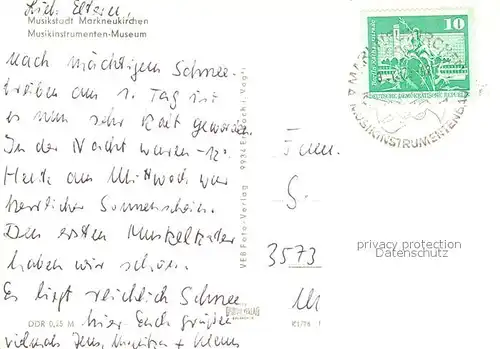 Liebe Eltern,
Musikstadt Markneukirchen
Musikinstrumenten-Museum
Nach mächtigem Schnee-
treiben am 1. Tag ist
es nun sehr kalt geworden.
In der Nacht waren -12°.
Heute am Mittwoch war
herrlicher Sonnenschein.
Den ersten Muskelkater
haben wir schon.
Es liegt reichlich Schnee
hier Euch grüßen
vielmals Jens, + Klaus
DDR 0,25 M
VEB Foto-Verlag 9934
10
DEUTSCHE DEMOKRATISCHE REPUBLIK
MUSIKINSTRUMENTENBAU
Fam.
S.
3573
privacy protection
Datenschutz